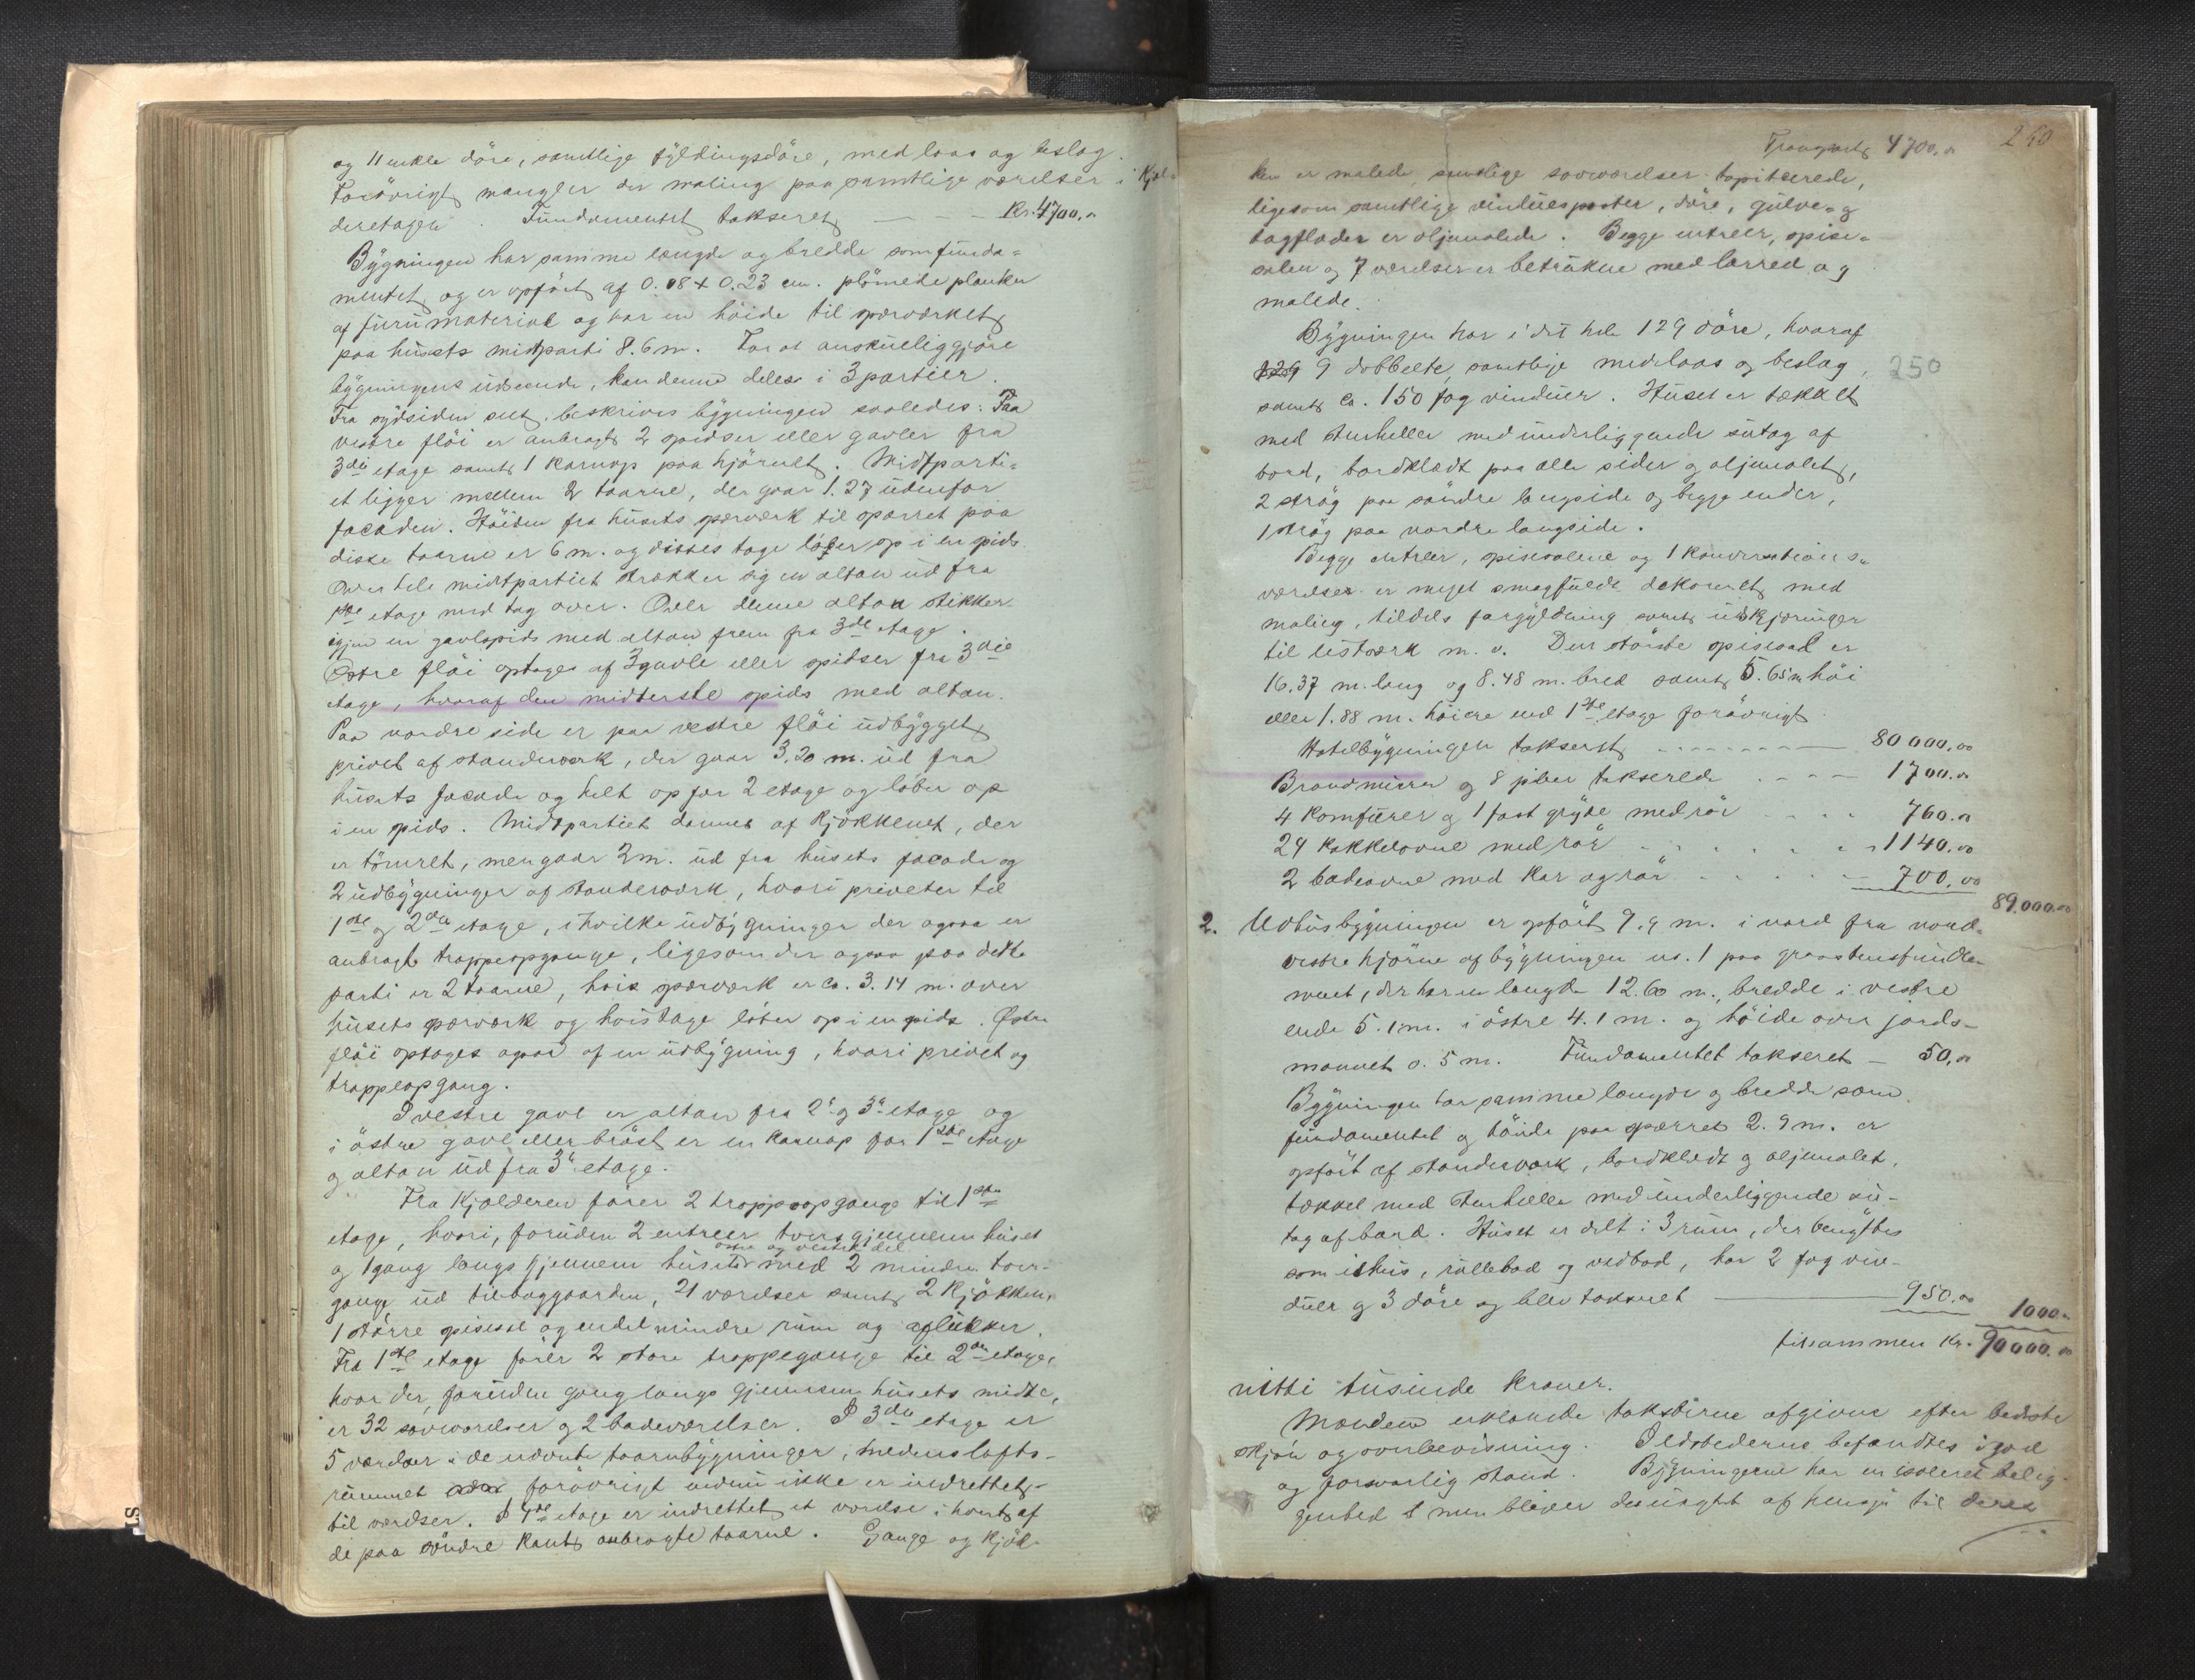 og 11 enkle döre, samtlige fyldingsdöre, med laas og beslag.
Forövrigt mangler der maling paa samtlige værelser i Kjæl-
deretagen. Fundamentet takseret — Kr. 4700,00
Bygningen har samme længde og bredde som funda-
mentet, og er opfört af 0.08 + 0.23 cm. plöiede planker
af furumaterial og har en höide til sperværket
paa husets midtparti 8.6 m. For at anskueliggjöre
bygningens udseende, kan denne deles i 3 partier.
Fra sydsiden seet, beskrives bygningen saaledes: Paa
vestre flöi er anbragt 2 spidser eller gavler fra
3die etage samt 1 karnap paa hjörnet. Midtparti-
et ligger mellem 2 taarne, der gaar 1.27 udenfor
facaden. Höiden fra husets sperværk til sperret paa
disse taarne er 6 m. og disses tage löber op i en spids
Over hele midtpartiet strækker sig en altan ud fra
1ste etage med tag over. Over denne altan stikker
igjen en gavlspids med altan frem fra 3de etage.
Östre flöi optages af 3 gavle eller spidser fra 3die
etage, hvoraf den midterste spids med altan.
Paa nordre side er paa vestre flöi udbygget
privet af standerværk, der gaar 3.20 m. ud fra
husets facade og helt op for 2 etage og löber op
i en spids. Midtpartiet dannes af Kjökkenet, der
er tömret, men gaar 2 m. ud fra husets facade og
2 udbygninger af standerværk, hvori priveter til
1ste og 2den etage, i hvilke udbygninger der ogsaa er
anbragt trappeopgange, ligesom der ogsaa paa dette
parti er 2 taarne, hvis sperværk er ca. 3.14 m. over
husets sperværk og hvis tage löber op i en spids. Östre
flöi optages ogsaa af en udbygning, hvori privet og
trappeopgang.
I vestre gavl er altan fra 2' og 3' etage og
i östre gavl eller bröst er en karnap for 1ste etage
og altan ud fra 3' etage.
Fra Kjælderen förer 2 trappeopgange til 1ste
etage, hvori, foruden 2 entreer tvers gjennem huset
östre og vestre del
og 1 gang langs gjennem husets med 2 mindre tver-
gange ud til baggaarden, 21 værelser samt 2 Kjökken,
1 större spisesal og endel mindre rum og aflukker.
Fra 1ste etage förer 2 store trappegange til 2den etage,
hvor der, foruden gang langs gjennem husets midte,
er 32 soveværelser og 2 badeværelser. I 3die etage er
5 værelser i de nævnte taarnbygninger, medens lofts-
rummet forövrigt endnu ikke er indrettet
til værelser. I 4de etage er indrettet et værelse i hvert af
de paa söndre kant anbragte taarne. Gange og Kjök-
Transport 4700,00 250
ken er malede, samtlige soveværelser tapitserede,
ligesom samtlige vinduesposter, döre, gulve og
tagflader er oljemalede. Begge entreer, spise-
salen og 7 værelser er betrukne med lærred og
malede.
Bygningen har i det hele 129 döre, hvoraf
129 9 dobbelte, samtlige med laas og beslag, 250
samt ca. 150 fag vinduer. Huset er tækket
med stenheller med underliggende sutag af
bord, bordklædt paa alle sider og oljemalet,
2 strög paa söndre langside og begge ender,
1 strög paa nordre langside.
Begge entreer, spisesalene og 1 konversations-
værelse er meget smagfuldt dekoreret med
maling, tildels forgyldning samt udskjæringer
til listværk m. v. Den störste spisesal er
16.37 m. lang og 8.48 m. bred samt 5.65 m höi
eller 1.88 m. höiere end 1ste etage forövrigt
Hotelbygningen takseret — 80 000.00
Brandmurer og 8 piber takserede — 1700.00
4 Komfurer og 1 fast gryde med rör 760.00
24 kakkelovne med rör 1140.00
2 badeovne med kar og rör 700.00
89.000.00
2. Udhusbygningen er opfört 9.9 m. i nord fra nord-
vestre hjörne af bygningen no. 1 paa graastensfunda-
ment, der har en længde 12.60 m., bredde i vestre
ende 5.1 m. i östre 4.1 m. og höide over jords-
monnet 0.5 m. Fundamentet takseret — 50,00
Bygningen har samme længde og bredde som
fundamentet og höide paa sperret 2.9 m. er
opfört af standerværk, bordklædt og oljemalet,
tækket med stenheller med underliggende su-
tag af bord. Huset er delt i 3 rum, der benyttes
som ishus, rullebod og vedbod, har 2 fag vin-
duer og 3 döre og blev takseret — 950.00
1000.00
tilsammen Kr. 90 000.00
nitti tusinde kroner.
Mændene erklærede taksterne afgivne efter bedste
skjön og overbevisning. Ildstederne befandtes i god
og forsvarlig stand. Bygningerne har en isoleret belig-
genhed men bliver desuagtet af hensyn til deres